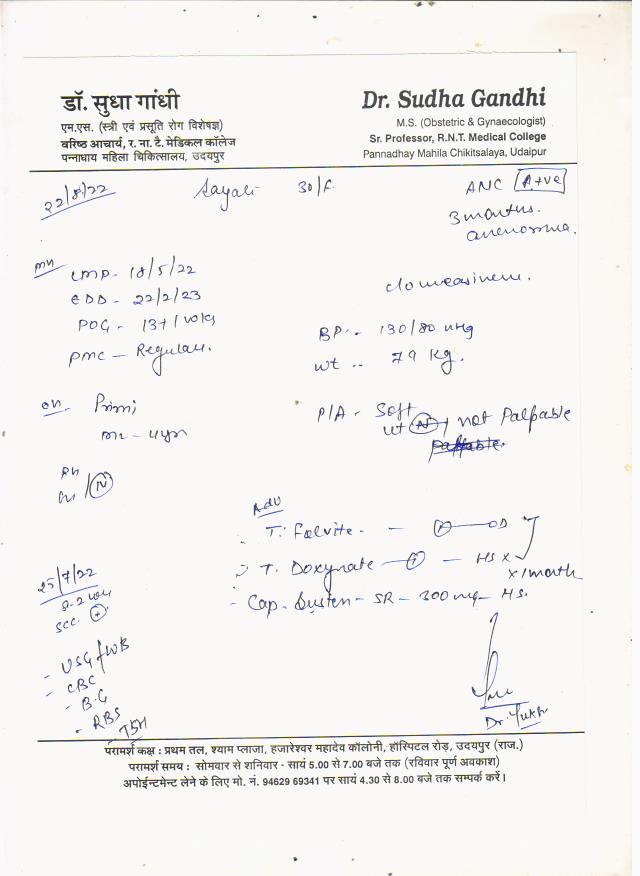 डॉ. सुधा गांधी
एम.एस. (स्त्री एवं प्रसूति रोग विशेषज्ञ)
वरिष्ठ आचार्य, र. ना. टै. मेडिकल कॉलेज
पन्नाधाय महिला चिकित्सालय, उदयपुर
Dr. Sudha Gandhi
M.S. (Obstetric & Gynaecologist)
Sr. Professor, R.N.T. Medical College
Pannadhay Mahila Chikitsalaya, Udaipur
22/8/22
Sayali 30/F
ANC A+ve
3 months.
LMP- 18/5/22
EDD - 22/2/23
POG - 13+1 wks
PMC - Regular.
BP - 130/80
wt - 79 kg.
Primi
P/A - Soft
ut N, not Palpable
N
Adv
T. Folvite - OD
T. Doxynate - HS x
x 1 month
Cap. Susten - SR - 300 mg - HS.
25/7/22
USG
CBC
B.G
RBS
TSH
परामर्श कक्ष : प्रथम तल, श्याम प्लाजा, हजारेश्वर महादेव कॉलोनी, हॉस्पिटल रोड़, उदयपुर (राज.)
परामर्श समय : सोमवार से शनिवार - सायं 5.00 से 7.00 बजे तक (रविवार पूर्ण अवकाश)
अपोईन्टमेन्ट लेने के लिए मो. नं. 94629 69341 पर सायं 4.30 से 8.00 बजे तक सम्पर्क करें।